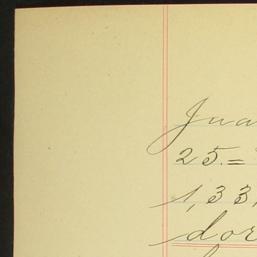 Jua
25.=
1,33,
dor